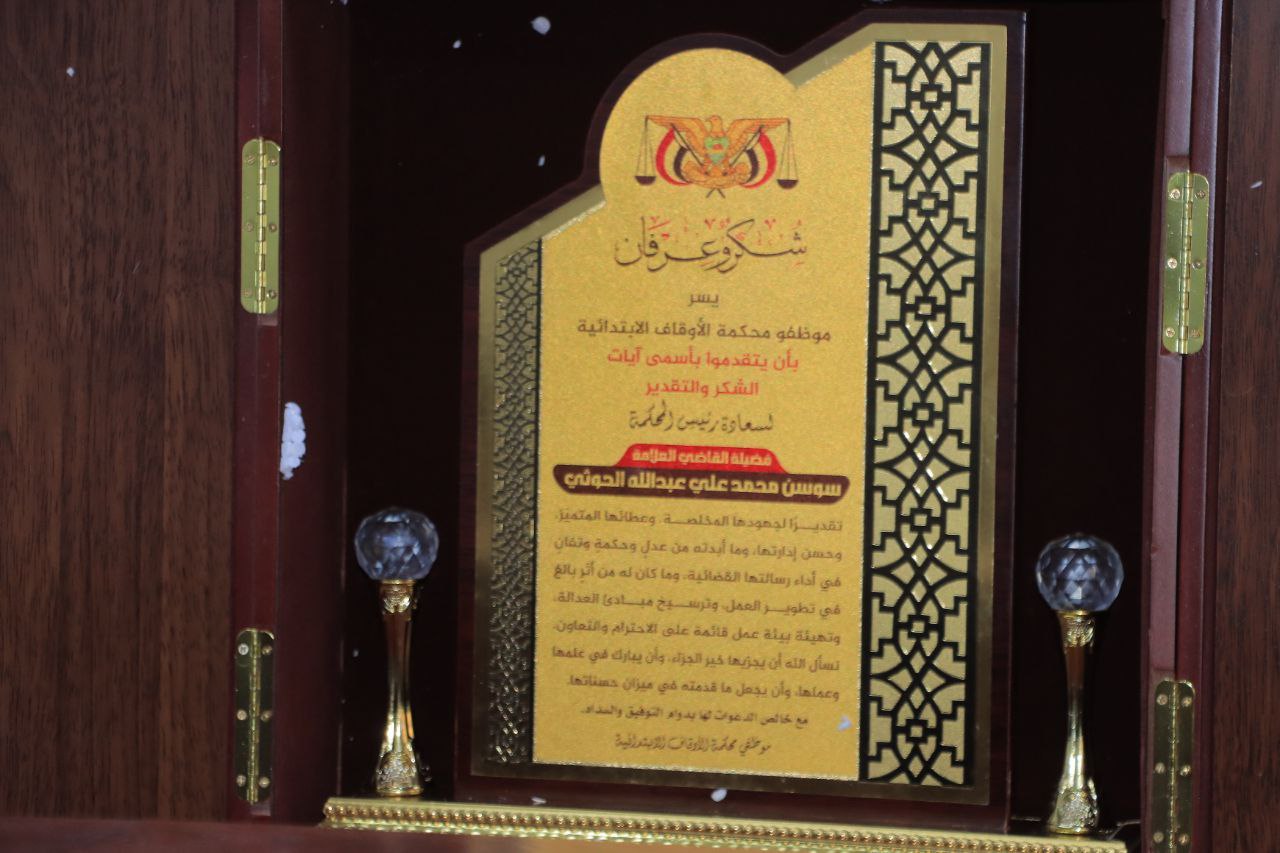 شكر وعرفان
يسر
موظفو محكمة الأوقاف الابتدائية
بأن يتقدموا بأسمى آيات
الشكر والتقدير
لسعادة رئيس المحكمة
فضيلة القاضي العلامة
سوسن محمد علي عبدالله الحوثي
تقديـــرًا لجهودها المخلصـــة، وعطائها المتميز،
وحسن إدارتها، وما أبدته من عدلٍ وحكمةٍ وتفانٍ
في أداء رسالتها القضائية، وما كان له من أثرٍ بالغ
في تطويـــر العمل، وترســـيخ مبـــادئ العدالة،
وتهيئة بيئة عمل قائمة على الاحترام والتعاون.
نسأل الله أن يجزيها خير الجزاء، وأن يبارك في علمها
وعملها، وأن يجعل ما قدمته في ميزان حسناتها.
مع خالص الدعوات لها بدوام التوفيق والسداد.
موظفي محكمة الأوقاف الابتدائية